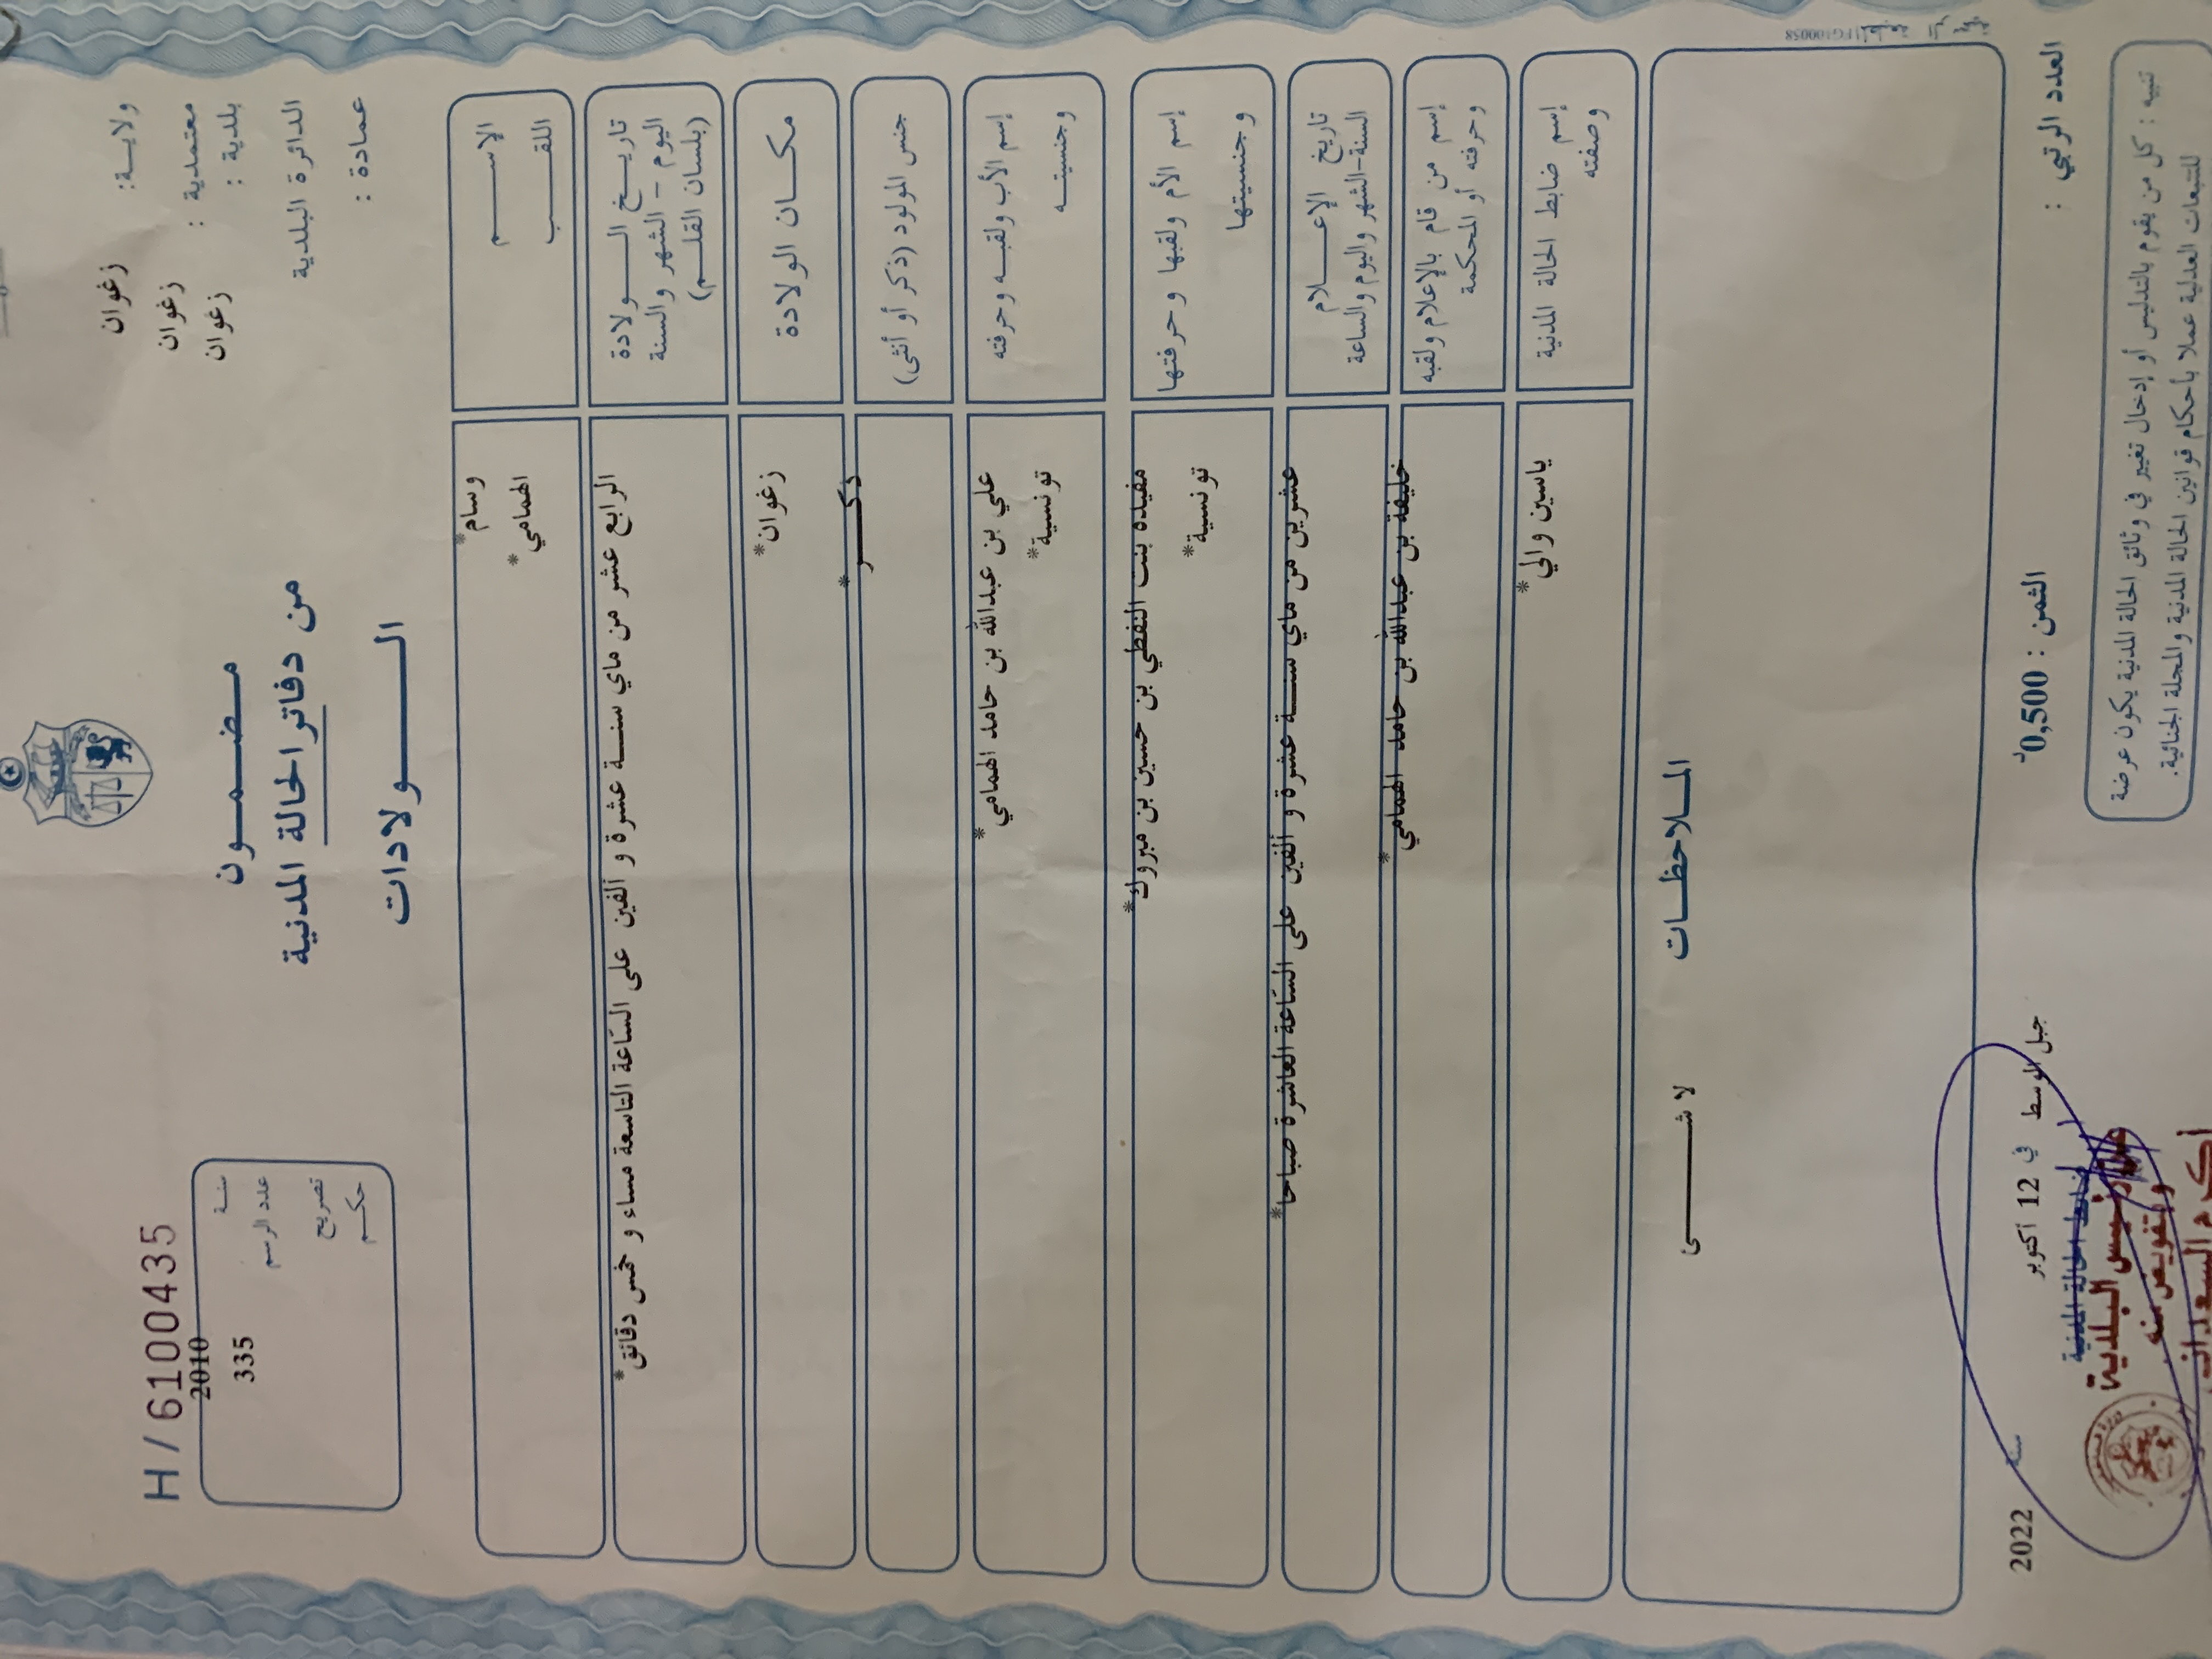 H / 6100435
ولاية: زغوان
معتمدية : زغوان
بلدية : زغوان
الدائرة البلدية
عمادة :
مضمون
من دفاتر الحالة المدنية
الولادات
سنة 2010
عدد الرسم 335
تصريح
حكم
الإسم وسام*
اللقب الهمامي*
تاريخ الولادة
اليوم - الشهر والسنة
(بلسان القلم)
الرابع عشر من ماي سنة عشرة و ألفين على السّاعة التاسعة مساء و خمس دقائق*
مكان الولادة زغوان*
جنس المولود (ذكر أو أنثى) ذكر*
إسم الأب ولقبه وحرفته علي بن عبدالله بن حامد الهمامي*
وجنسيته تونسية*
إسم الأم ولقبها وحرفتها مفيده بنت النفطي بن حسين بن مبروك*
وجنسيتها تونسية*
تاريخ الإعلام
السنة-الشهر واليوم والساعة
عشرين من ماي سنة عشرة و ألفين على السّاعة العاشرة صباحا*
إسم من قام بالإعلام ولقبه
وحرفته أو المحكمة
خليفة بن عبدالله بن حامد الهمامي*
إسم ضابط الحالة المدنية
وصفته
ياسين والي*
الملاحظات
لا شئ
FG100058
العدد الرتبي :
الثمن : 0,500د
جبل الوسط في 12 أكتوبر سنة 2022
ضابط الحالة المدنية
رئيس البلدية
وبتفويض منه
تنبيه : كل من يقوم بالتدليس أو إدخال تغيير في وثائق الحالة المدنية يكون عرضة
للتتبعات العدلية عملا بأحكام قوانين الحالة المدنية والمجلة الجنائية.